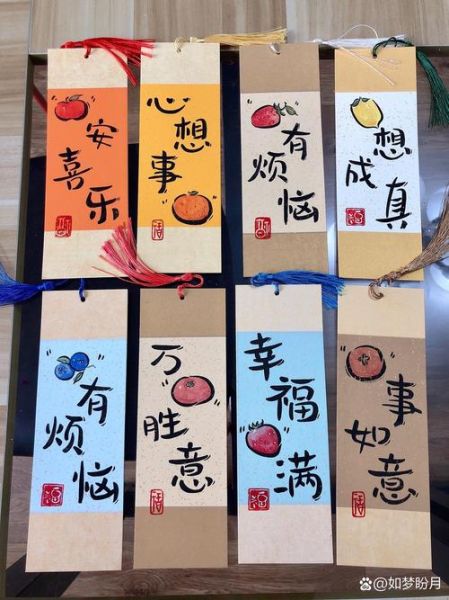 安
喜乐
心
想
事
有
烦
恼
想
成真
有
烦
恼
万
胜
意
幸
福
满
事
如
意
福
福
@如梦盼月